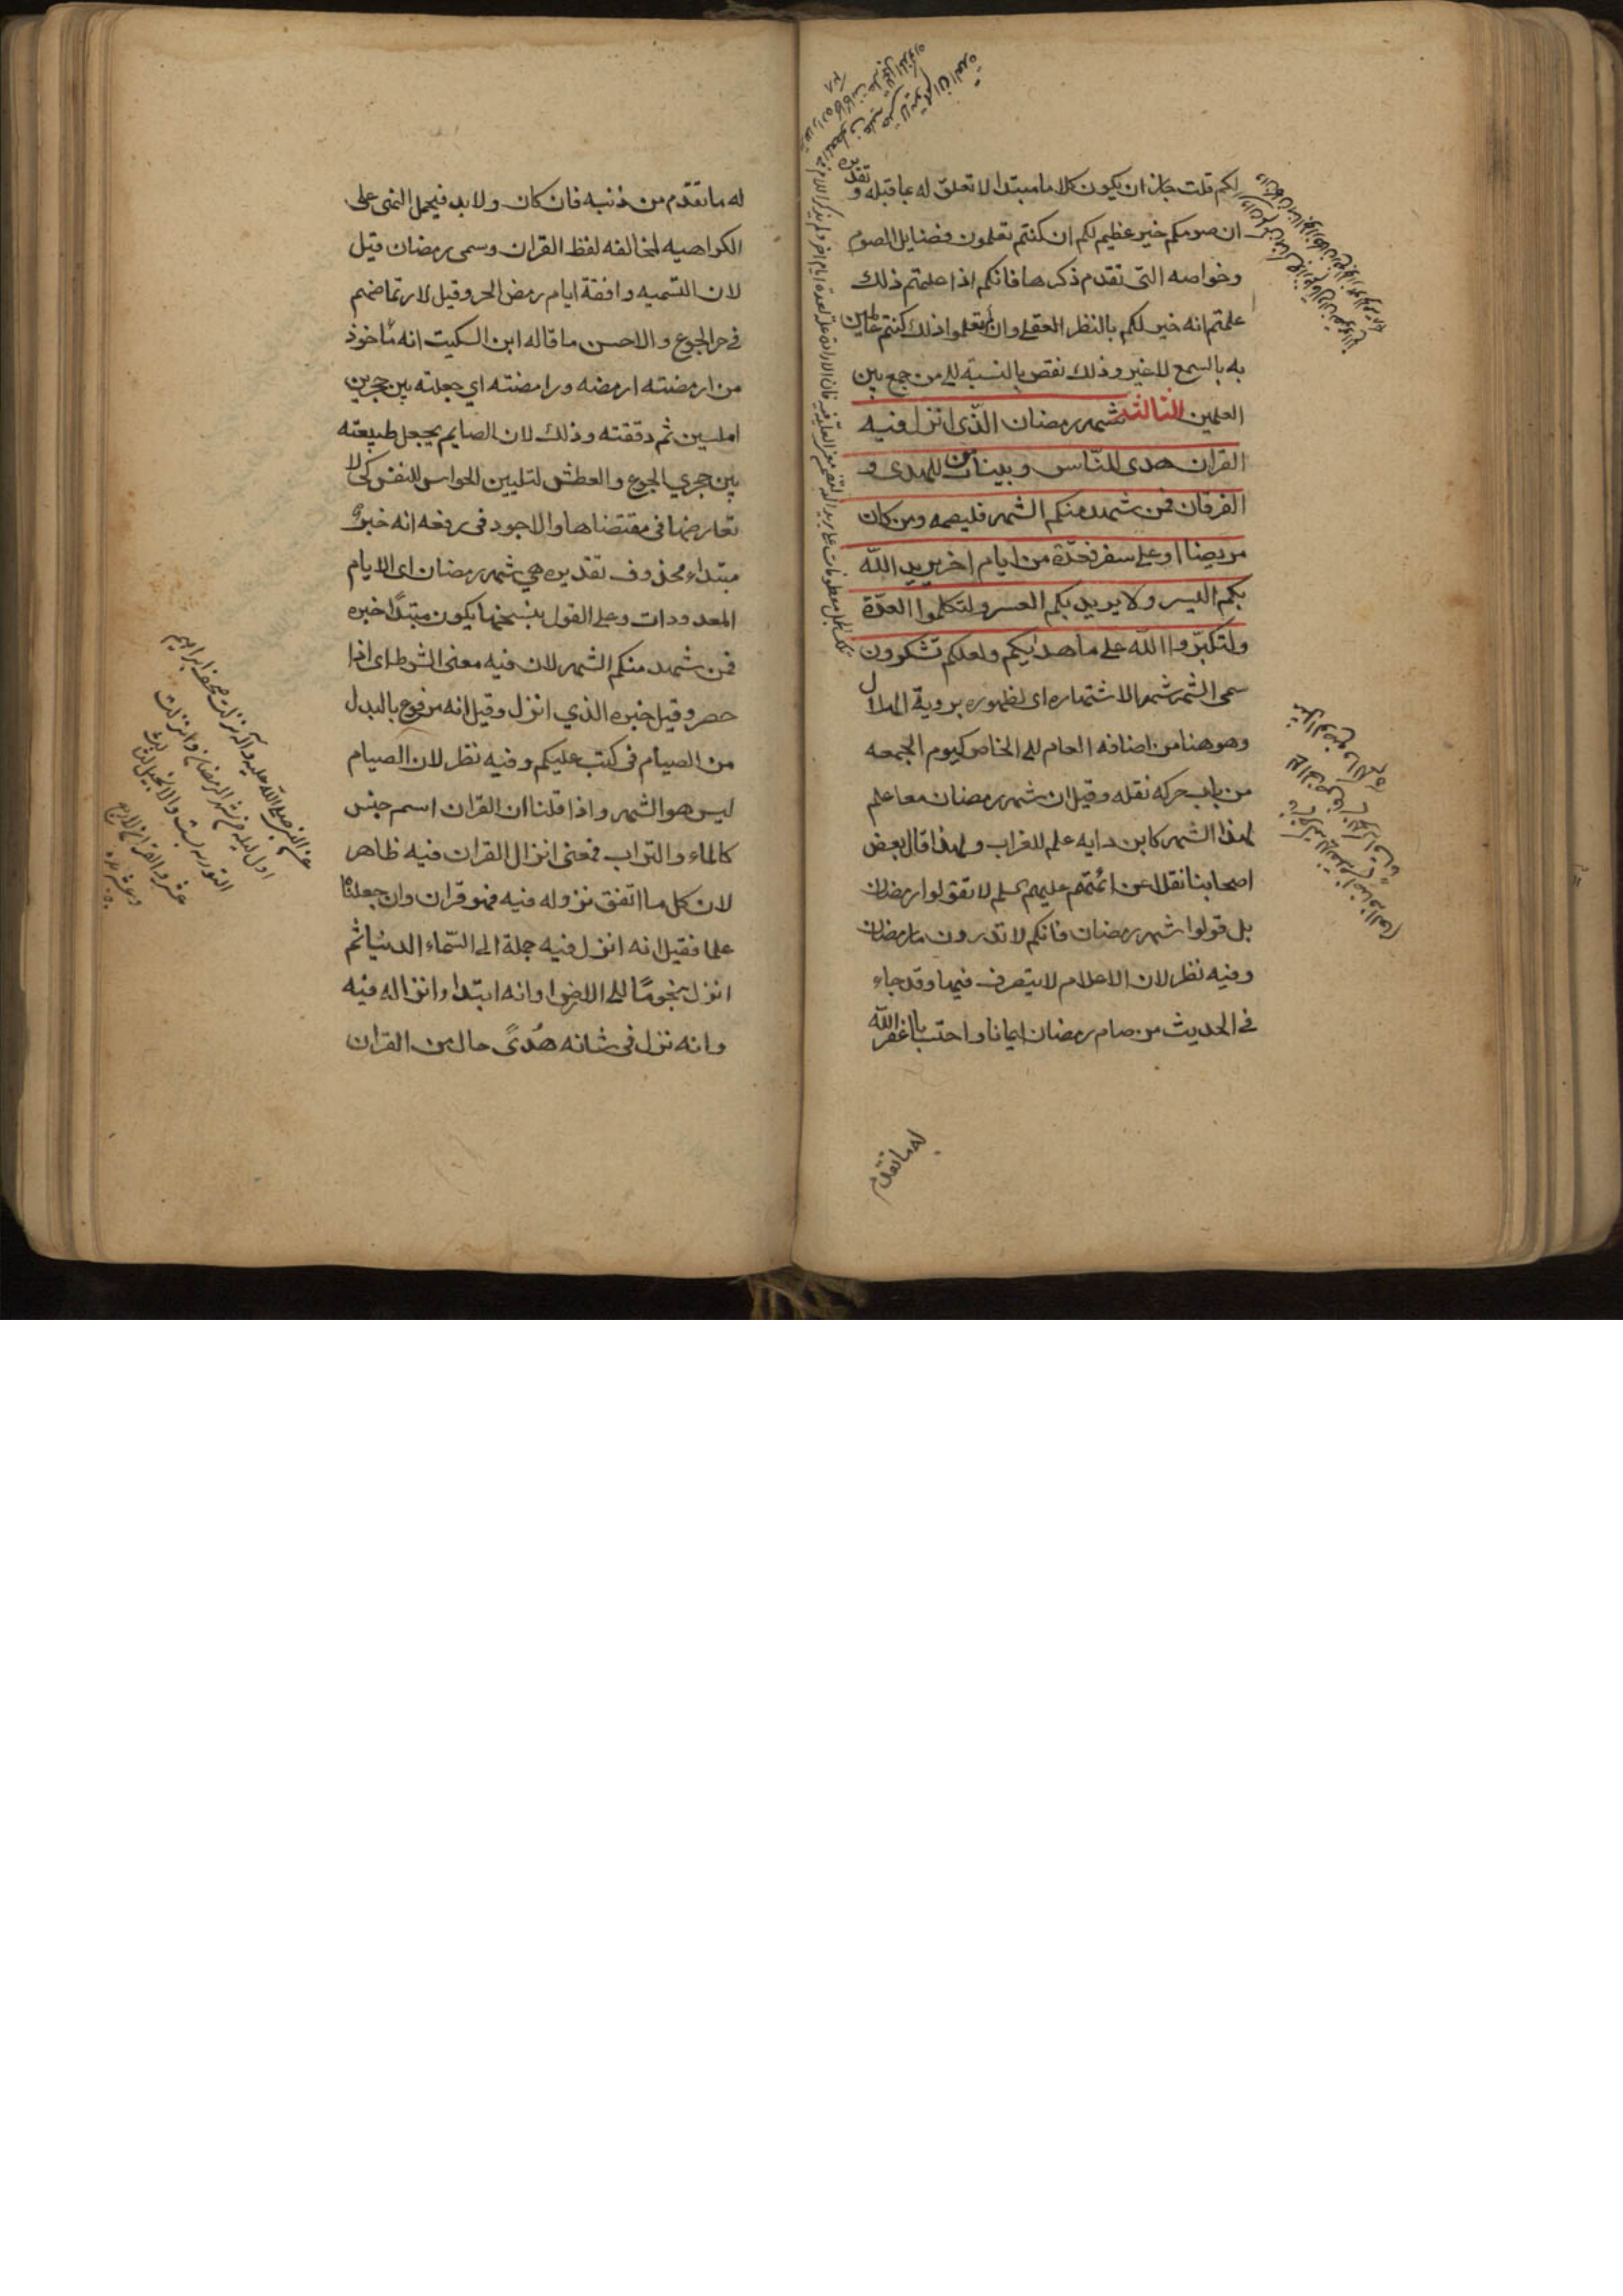 لكم قلت جاز ان يكون كلاما مبتدا لا تعلق له بما قبله و تقديره
ان صومكم خير عظيم لكم ان كنتم تعلمون فضايل الصوم
وخواصه التى تقدم ذكرها فانكم اذا علمتم ذلك
علمتم انه خير لكم بالنظر العقلي وان لم تعلموا ذلك كنتم عالمين
به بالسمع لا غير وذلك نقص بالنسبة الى من جمع بين
العلمين الثالثه شهر رمضان الذى انزل فيه
القران هدى للناس وبينات من الهدى و
الفرقان فمن شهد منكم الشهر فليصمه ومن كان
مريضا او على سفر فعدة من ايام اخر يريد الله
بكم اليسر ولا يريد بكم العسر ولتكملوا العدة
ولتكبروا الله على ما هديكم ولعلكم تشكرون
سمى الشهر شهرا لاشتهاره اى لظهوره بروية الهلال
وهو هنا من اضافه العام الى الخاص كيوم الجمعه
من باب حركه نقله وقيل ان شهر رمضان معا علم
لهذا الشهر كابن دايه علم للغراب ولهذا قال بعض
اصحابنا نقلا عن ائمتهم عليهم السلم لا تقولوا رمضان
بل قولوا شهر رمضان فانكم لا تدرون ما رمضان
وفيه نظر لان الاعلام لا يتصرف فيها وقد جاء
فى الحديث من صام رمضان ايمانا واحتسابا غفر الله
له ما تقدم
له ما تقدم من ذنبه فان كان ولا بد فيحمل النهى على
الكراهيه لمخالفه لفظ القران وسمى رمضان قيل
لان التسميه وافقة ايام رمض الحر وقيل لارتماضهم
فى حر الجوع والاحسن ما قاله ابن السكيت انه مأخوذ
من ارمضته ارمضه ورامضته اي جعلته بين حجرين
املسين ثم دققته وذلك لان الصايم يجعل طبيعته
بين حجري الجوع والعطش لتليين الحواس للنفس كى لا
تعارضها فى مقتضاها والاجود فى رفعه انه خبر
مبتداء محذوف تقديره هي شهر رمضان اى الايام
المعدودات وعلى القول بنسخها يكون مبتدًا خبره
فمن شهد منكم الشهر لان فيه معنى الشرط اى اذا
حضر وقيل خبره الذي انزل وقيل انه مرفوع بالبدل
من الصيام فى كتب عليكم وفيه نظر لان الصيام
ليس هو الشهر واذا قلنا ان القران اسم جنس
كالماء والتراب فمعنى انزال القران فيه ظاهر
لان كل ما اتفق نزوله فيه فهو قران وان جعلناه
علما فقيل انه انزل فيه جملة الى السماء الدنيا ثم
انزل نجومًا الى الارض او انه ابتدا وانزاله فيه
وانه نزل فى شانه هُدًى حال من القران
عن النبي صلى الله عليه وآله نزلت صحف ابراهيم
اول ليلة من شهر رمضان وانزلت